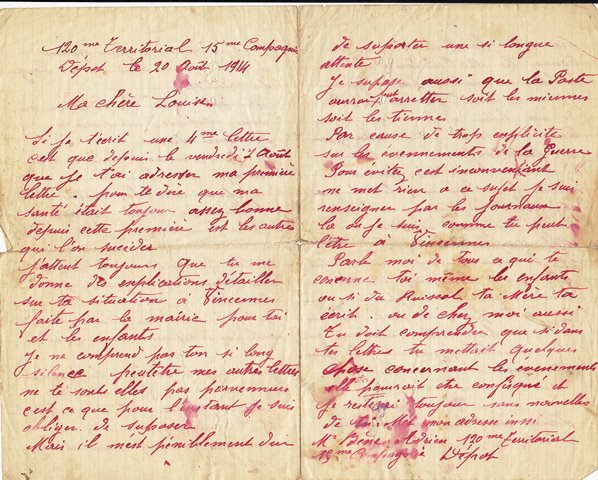 120me Territorial 15me Compagnie
Dépot le 20 Août 1914
Ma chère Louise
Si je t'écrit une 4me lettre
cest que depuis le vendredi 7 Août
que je t'ai adresser ma première
lettre. pour te dire que ma
santé était toujour assez bonne
depuis cette première est les autre
qui l'on succéder
J'attent toujours que tu me
donne des explications détailler
sur ta situation à Vincennes
faite par la mairie pour toi
et les enfants
Je ne comprend pas ton si long
silence peutêtre mes autres lettres
ne te sont elles pas parvenues
cest ce que pour l'instant je suis
obliger de supposer
Mais il m'est péniblement dur
de suporter une si longue
attente
Je supose aussi que la Poste
aurrai put arretter soit les miennes
soit les tiennes
Par cause de trop explicite
sur les evennements de la Guerre
Pour eviter cest inconvenient
ne met rien a ce sujet je suis
renseigner par les journaux
la ou je suis comme tu peut
l'être à Vincennes
Parle moi de tous ce qui te
concerne toi même les enfants
ou si du ta Mère ta
écrit. ou de chez moi aussi
Tu doit comprendre que si dans
tes lettres tu mettait quelques
chose concernant les evenements
elle pourrait etre confisqué et
je resterai toujour sans nouvelles
de toi met mon adresse insi
Mr Adrien 120me Territorial
15me Compagnie Dépot